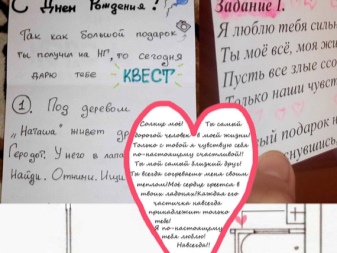 С Днем Рождения!
Так как большой подарок
ты получил на НГ, то сегодня
дарю тебе КВЕСТ
1. Под деревом
„Наташа" живет
Геродот. У него в лапа
Найди. Отними. Ищи
Задание 1.
Я люблю тебя силь
Ты моё всё, моя жи
Пусть все злые ссо
Только наши чувст
вый подарок н
нувшись
Солнце моё! Ты самый
дорогой человек в моей жизни!
Только с тобой я чувствую себя
по-настоящему счастливой!!
Ты мой самый близкий друг!
Ты всегда согреваешь меня своим
теплом!Моё сердце греется в
твоих ладонях!Каждая его
частичка навсегда
принадлежит только
тебе!
Я по-настоящему
тебя люблю!
Навсегда!!